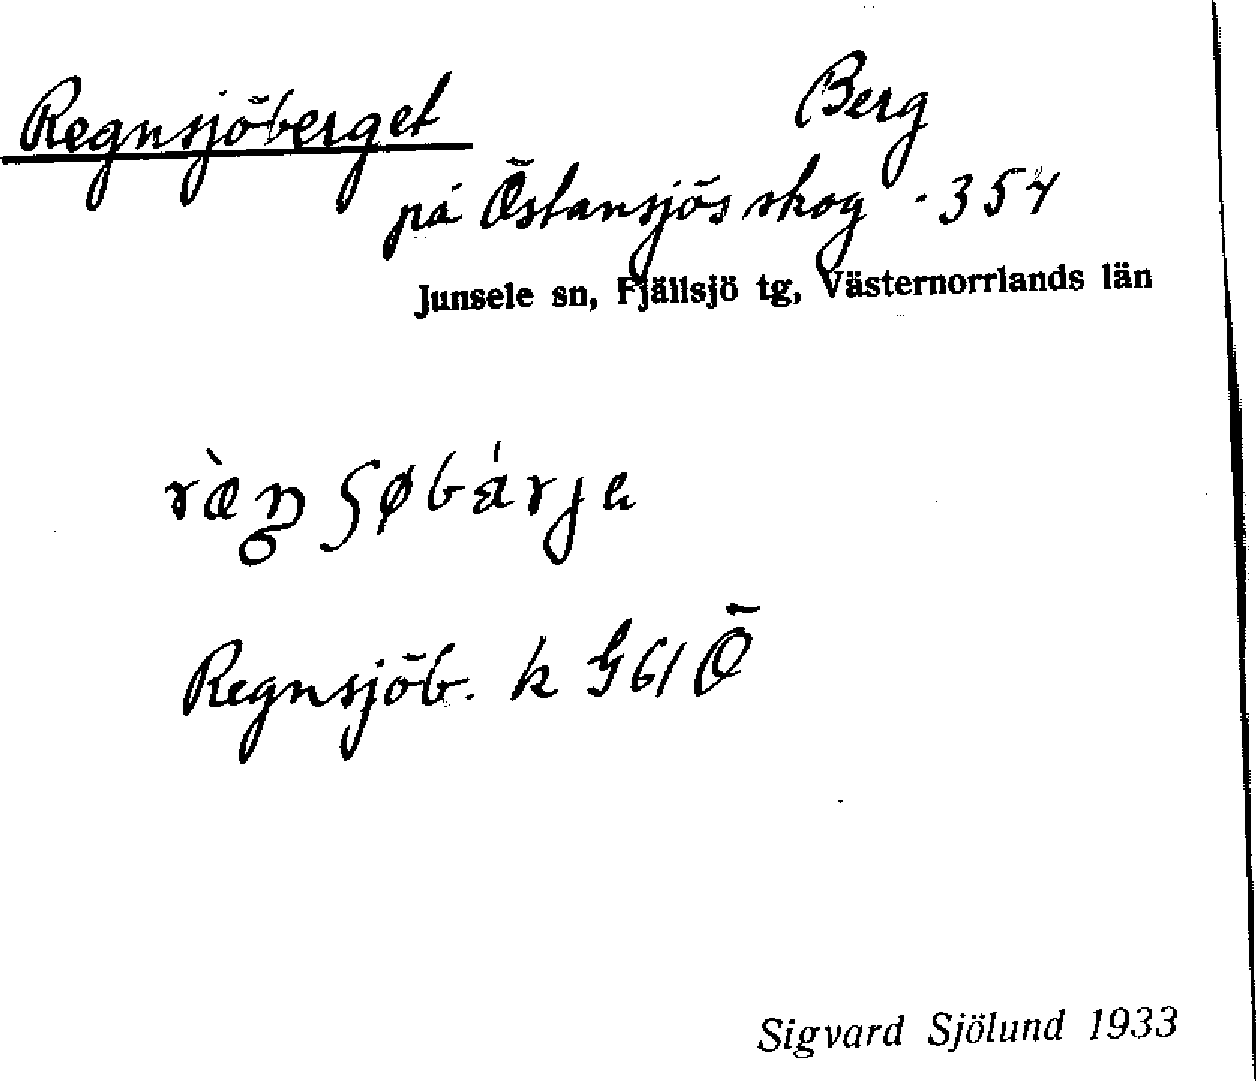 Regnsjöberget Berg
på Östansjös skog - 354
Junsele sn, Fjällsjö tg, Västernorrlands län
Regnsjöb. k G61Ö
Sigvard Sjölund 1933